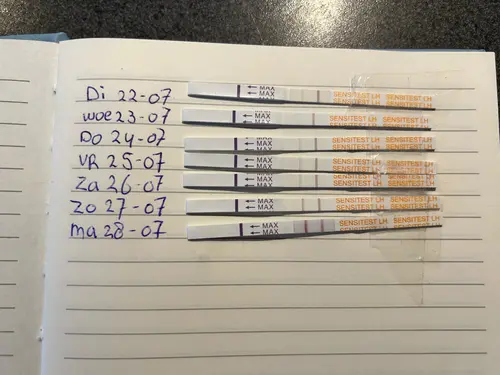 Di 22-07 ← MAX ← MAX SENSITEST LH SENSITEST LH
woe 23-07 ← MAX ← MAX SENSITEST LH SENSITEST LH
Do 24-07 ← MAX ← MAX SENSITEST LH SENSITEST LH
VR 25-07 ← MAX ← MAX SENSITEST LH SENSITEST LH
Za 26-07 ← MAX ← MAX SENSITEST LH SENSITEST LH
Zo 27-07 ← MAX ← MAX SENSITEST LH SENSITEST LH
ma 28-07 ← MAX ← MAX SENSITEST LH SENSITEST LH